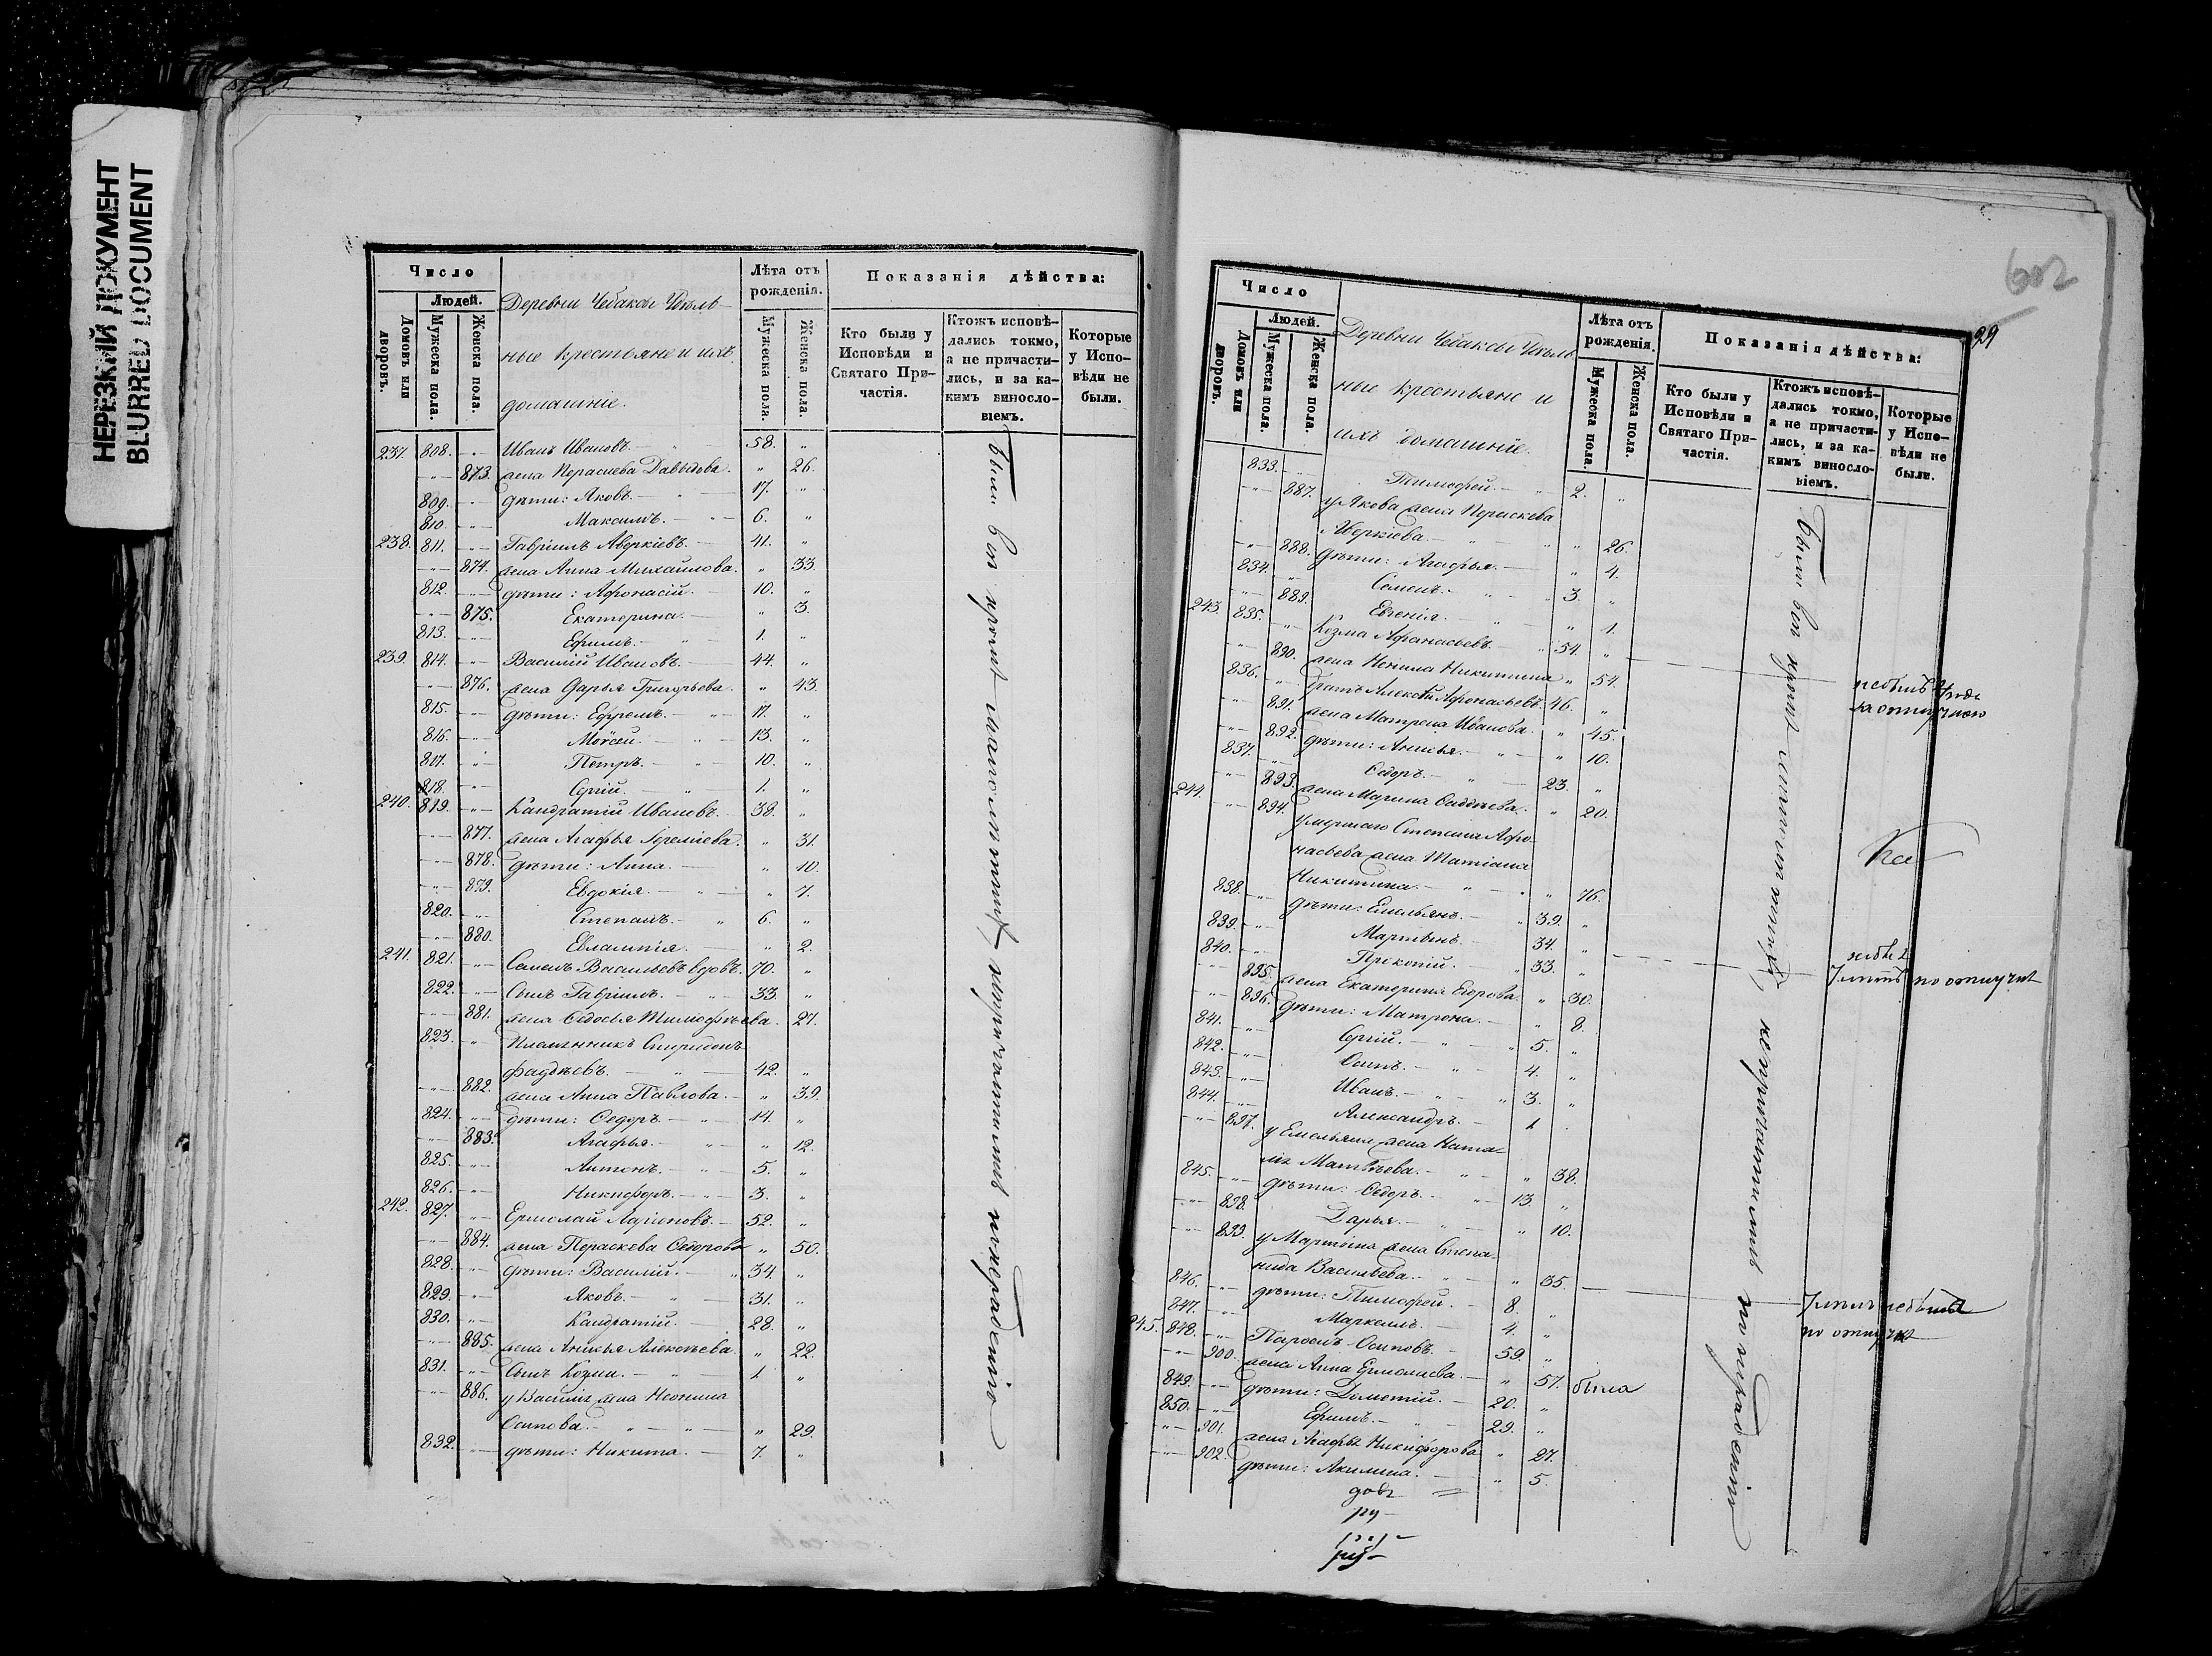 НЕРЕЗКИЙ ДОКУМЕНТ
BLURRED DOCUMENT
Число
Людей.
Домовъ или дворовъ.
Мужеска пола.
Женска пола.
Деревни Чебаксы Удѣль-
ные крестьяне и ихъ
домашніе.
Лѣта отъ рожденія.
Мужеска пола.
Женска пола.
Показанія дѣйства:
Кто были у Исповѣди и Святаго Причастія.
Ктожъ исповѣдались токмо, а не причастились, и за какимъ винословіемъ.
Которые у Исповѣди не были.
237. 808. Иванъ Ивановъ. 58.
873. жена Параскева Давыдова. 26.
809. дѣти: Яковъ. 17.
810. Максимъ. 6.
238. 811. Гавріилъ Аверкіевъ. 41.
874. жена Анна Михайлова. 33.
812. дѣти: Афонасій. 10.
875. Екатерина. 3.
813. Ефимъ. 1.
239. 814. Василій Ивановъ. 44.
876. жена Дарья Григорьева. 43.
815. дѣти: Ефремъ. 17.
816. Моѵсей. 13.
817. Петръ. 10.
818. Сергій. 1.
240. 819. Кандратій Ивановъ. 38.
877. жена Агафья 31.
878. дѣти: Анна. 10.
879. Евдокія. 7.
820. Степанъ. 6.
880. Евлампія. 2.
241. 821. Семенъ Васильевъ вдовъ. 70.
822. Сынъ Гавріилъ. 33.
881. жена Ѳедосья Тимофѣева. 27.
823. Племянникъ Спиридонъ
Фадѣевъ. 42.
882. жена Анна Павлова. 39.
824. дѣти: Ѳедоръ. 14.
883. Агафья. 12.
825. Антонъ. 5.
826. Никифоръ. 3.
242. 827. Ермолай Ларіоновъ. 52.
884. жена Параскева Ѳедорова 50.
828. дѣти: Василій. 34.
829. Яковъ. 31.
830. Кандратій. 28.
885. жена Анисья Алексѣева. 22.
831. Сынъ Козма. 1
886. у Василія жена Неонила
Осипова. 29.
832. дѣти: Никита. 7.
602
29
Число
Людей.
Домовъ или дворовъ.
Мужеска пола.
Женска пола.
Деревни Чебаксы Удѣль-
ные крестьяне и
ихъ домашніе.
Лѣта отъ рожденія.
Мужеска пола.
Женска пола.
Показанія дѣйства:
Кто были у Исповѣди и Святаго Причастія.
Ктожъ исповѣдались токмо, а не причастились, и за какимъ винословіемъ.
Которые у Исповѣди не были.
833. Тимофей. 2.
887. у Якова жена Параскева
Аверкіева. 26.
888. дѣти: Агафья. 4.
834. Семенъ. 3.
889. Евгенія. 1.
243. 835. Козма Афанасьевъ. 54.
890. жена Неонила Никитина 54.
836. братъ Алексѣй Афонасьевъ. 46.
891. жена Матрена Иванова. 45.
892. дѣти: Анисья. 10.
837. Ѳедоръ. 23.
893. жена Марина Фаддѣева. 20.
244. 894. умершаго Степана Афо-
насьева жена Татіана
Никитина. 76.
838. дѣти: Емельянъ. 39.
839. Мартынъ. 34.
840. Прокопій. 33.
895. жена Екатерина Егорова. 30.
896. дѣти: Матрона. 8.
841. Сергій. 5.
842. Осипъ. 4.
843. Иванъ. 3.
844. Александръ. 1
897. у Емельяна жена Ната-
лія Матвѣева. 38.
845. дѣти: Ѳедоръ. 13.
898. Дарья. 10.
899. у Мартына жена Степа-
нида Васильева. 35.
846. дѣти: Тимофей. 8.
847. Маркелъ. 4.
245. 848. Парѳенъ Осиповъ. 59.
900. жена Анна Ермолаева. 57. была
849. дѣти: Дометій. 20.
850. Ефимъ. 29.
901. жена Агафья Никифорова 27.
902. дѣти: Акилина. 5.
по отлучкѣ
по отлучкѣ